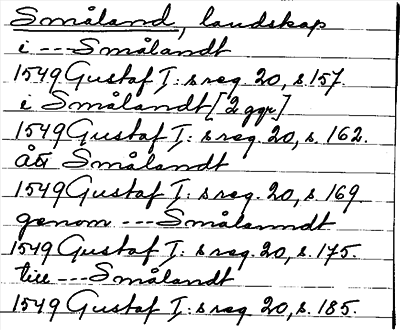 Småland, landskap
i --- Smålandt
1549 Gustaf I:s reg. 20, s 157.
i Smålandt [2 ggr]
1549 Gustaf I:s reg. 20, s. 162.
ått Smålandt
1549 Gustaf I:s reg. 20, s. 169
genom --- Smålanndt
1549 Gustaf I:s reg. 20, s. 175.
till --- Smålandt
1549 Gustaf I:s reg. 20, s. 185.